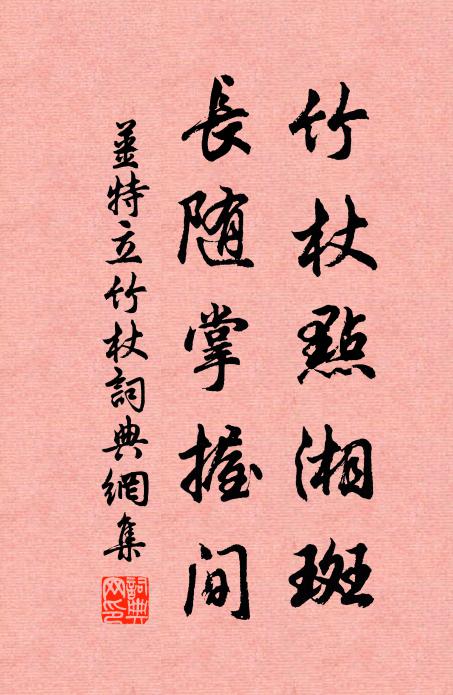 竹杖點湘斑
長随掌握间
姜特立竹杖詞典網集
詞典網印